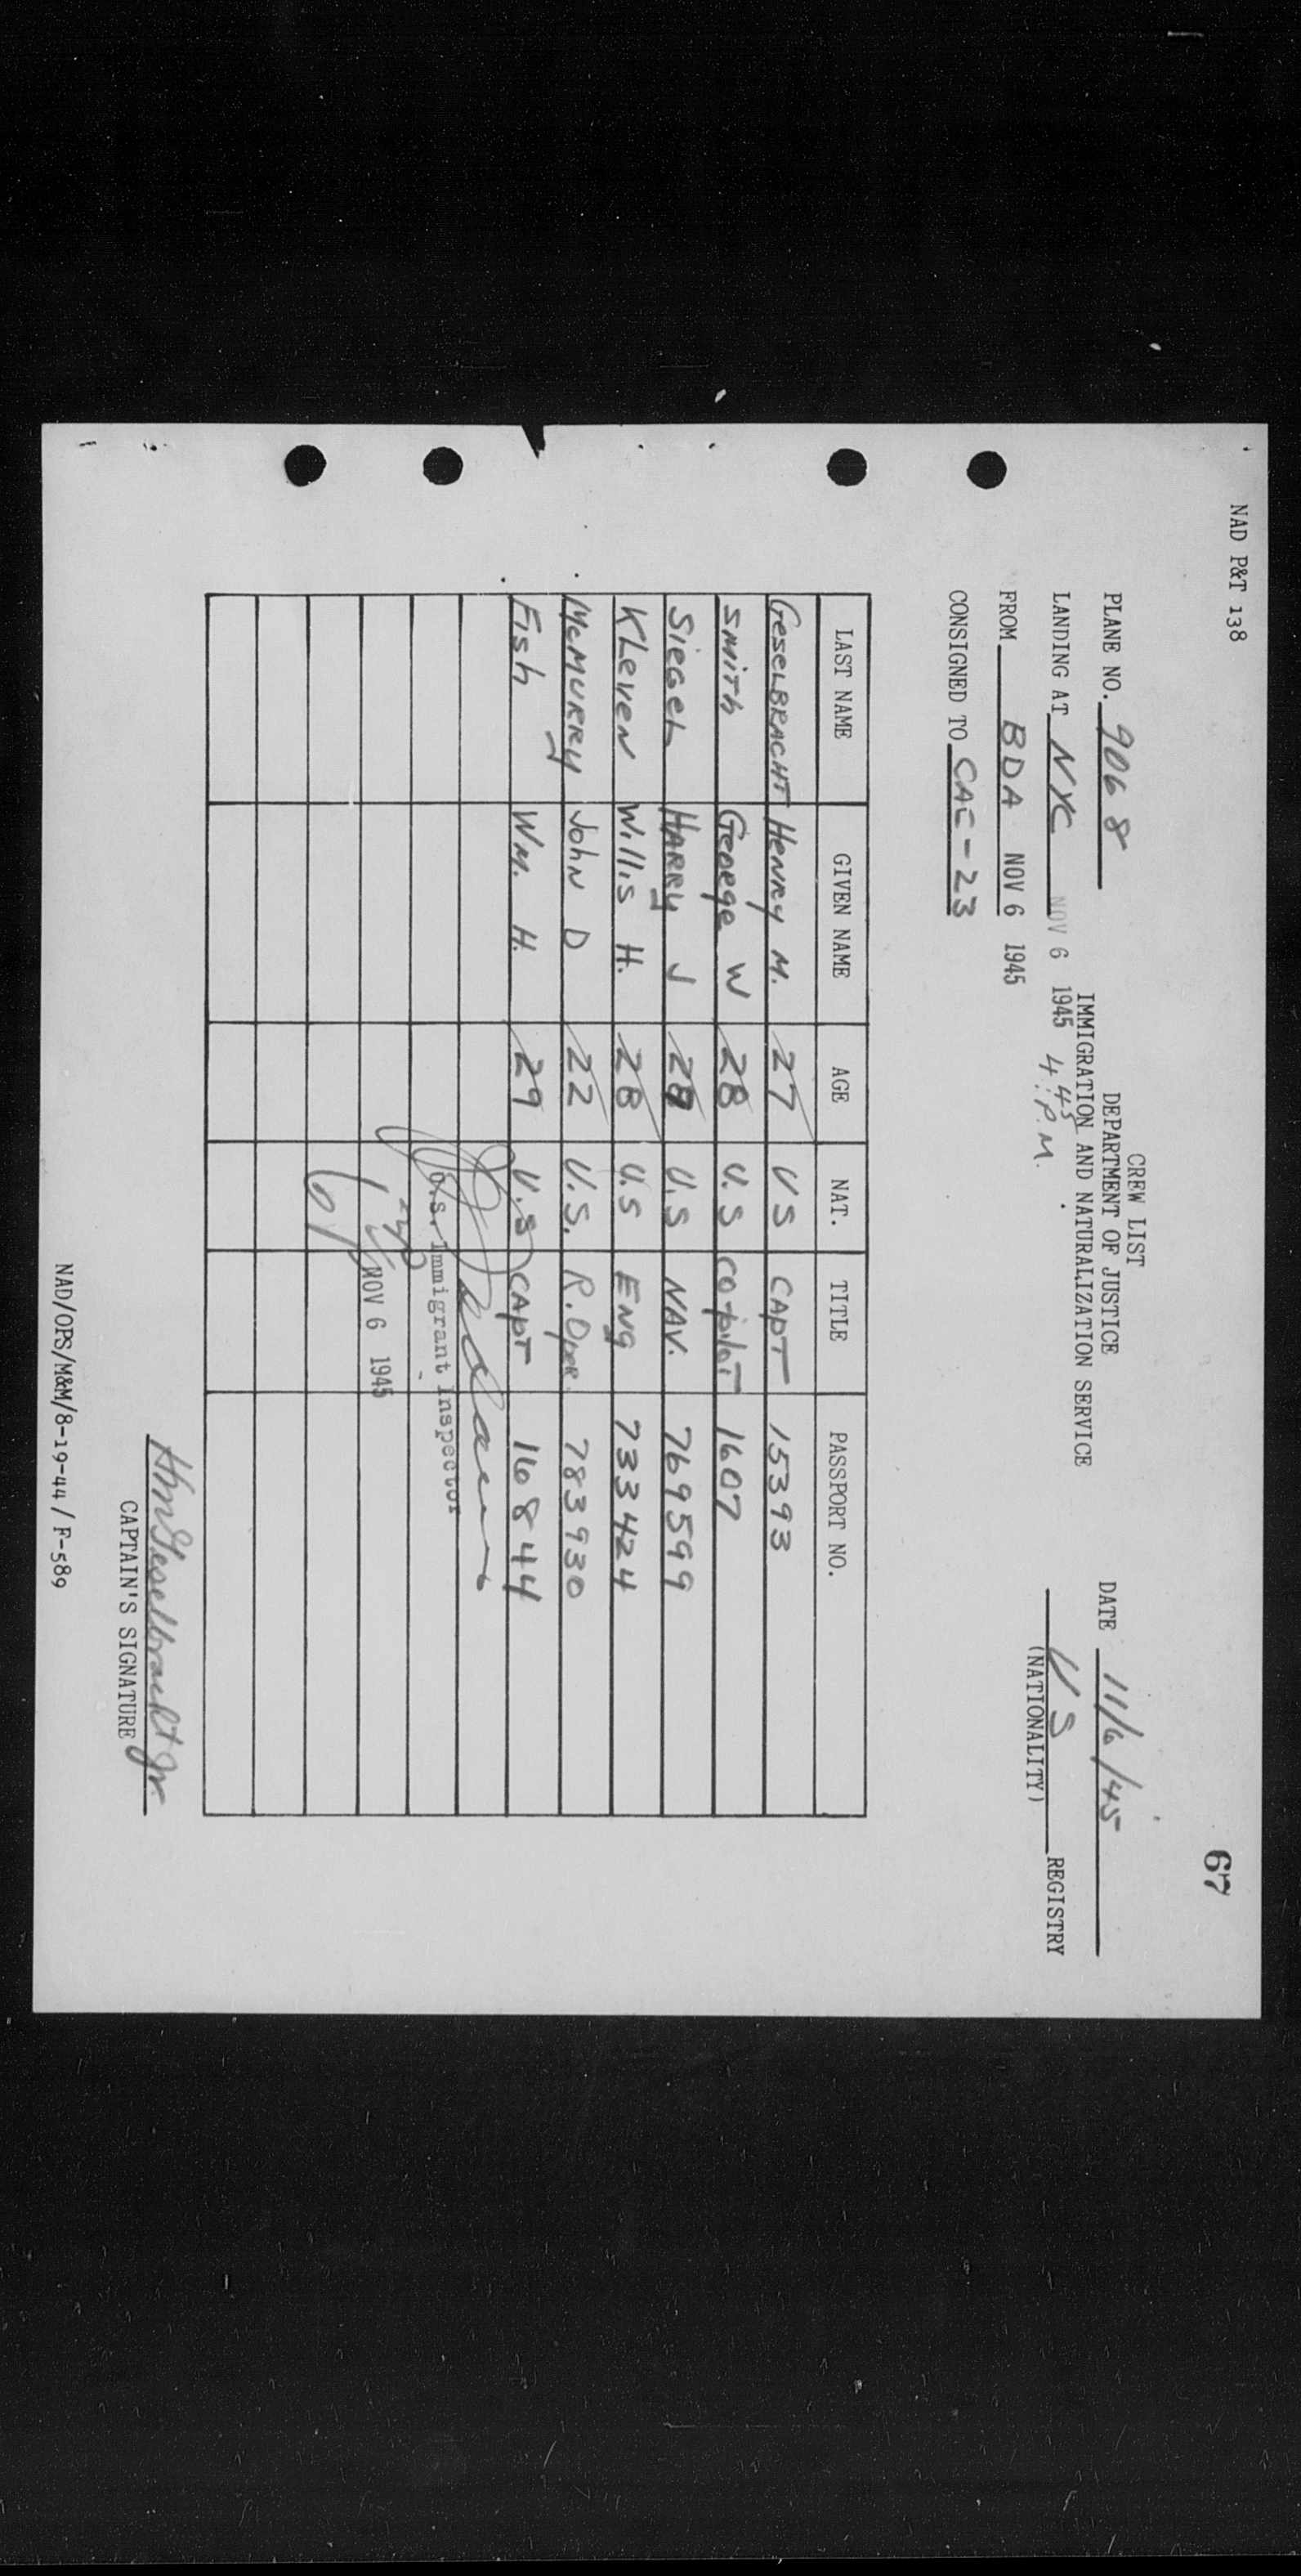 NAD P&T 138
67
CREW LIST
DEPARTMENT OF JUSTICE
IMMIGRATION AND NATURALIZATION SERVICE
PLANE NO. 9068
DATE 11/6/45
LANDING AT NYC NOV 6 1945 4:45 P.M.
US REGISTRY
(NATIONALITY)
FROM BDA NOV 6 1945
CONSIGNED TO CAC-23
LAST NAME GIVEN NAME AGE NAT. TITLE PASSPORT NO.
GeseLBRACHT Henry M. 27 US CAPT 15393
Smith George W 28 U.S co-pilot 1607
SiegeL HARRy J 28 U.S NAV. 769599
KLeven Willis H. 28 U.S ENg 733424
McMURRy John D 22 U.S. R.Oper. 783930
Fish Wm. H. 29 U.S CAPT 16844
U.S. Immigrant Inspector
NOV 6 1945
6
HM Geselbracht Jr.
CAPTAIN'S SIGNATURE
NAD/OPS/M&M/8-19-44/F-589